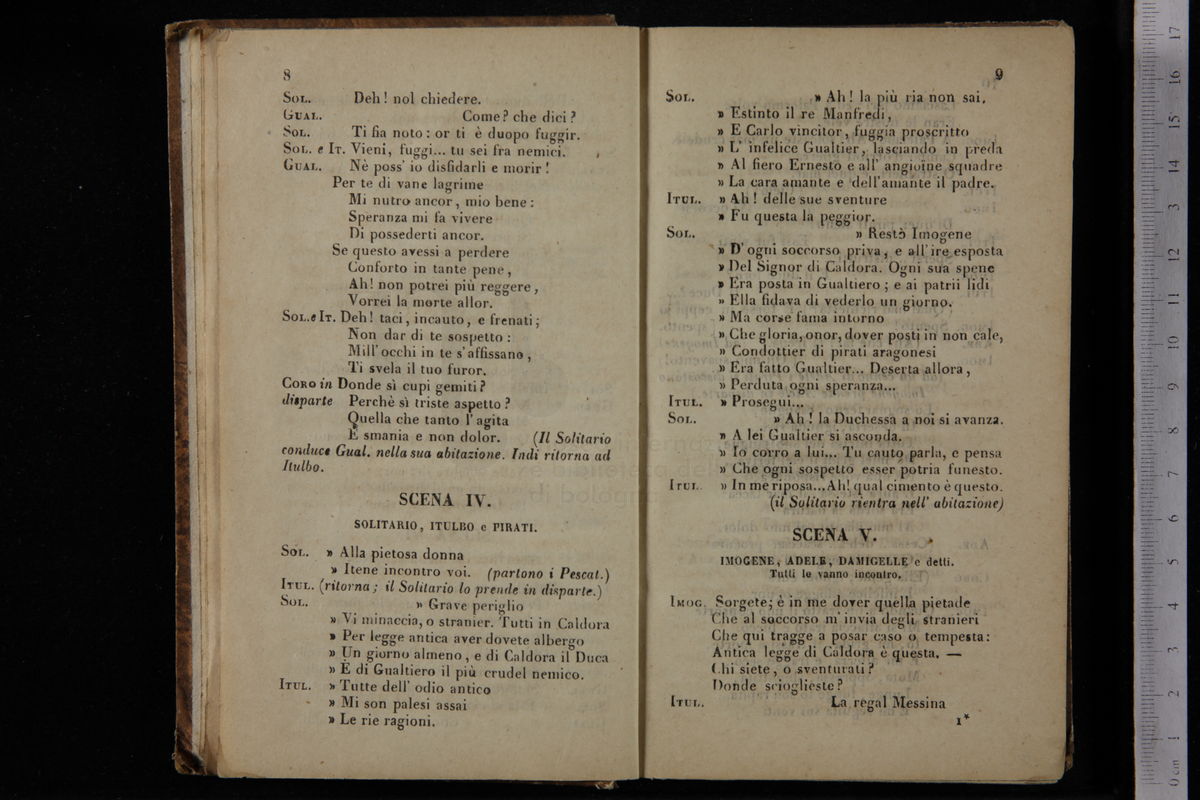 8
SOL. Deh! nol chiedere.
GUAL. Come? che dici?
SOL. Ti fia noto: or ti è duopo fuggir.
SOL. e IT. Vieni, fuggi... tu sei fra nemici.
GUAL. Nè poss' io disfidarli e morir!
Per te di vane lagrime
Mi nutro ancor, mio bene:
Speranza mi fa vivere
Di possederti ancor.
Se questo avessi a perdere
Conforto in tante pene,
Ah! non potrei più reggere,
Vorrei la morte allor.
SOL. e IT. Deh! taci, incauto, e frenati;
Non dar di te sospetto:
Mill' occhi in te s'affissano,
Ti svela il tuo furor.
CORO in Donde sì cupi gemiti?
disparte Perchè sì triste aspetto?
Quella che tanto l' agita
È smania e non dolor. (Il Solitario
conduce Gual. nella sua abitazione. Indi ritorna ad
Itulbo.
SCENA IV.
SOLITARIO, ITULBO e PIRATI.
SOL. » Alla pietosa donna
» Itene incontro voi. (partono i Pescat.)
ITUL. (ritorna; il Solitario lo prende in disparte.)
SOL. » Grave periglio
» Vi minaccia, o stranier. Tutti in Caldora
» Per legge antica aver dovete albergo
» Un giorno almeno, e di Caldora il Duca
» È di Gualtiero il più crudel nemico.
ITUL. » Tutte dell' odio antico
» Mi son palesi assai
» Le rie ragioni.
9
SOL. » Ah! la più ria non sai.
» Estinto il re Manfredi,
» E Carlo vincitor, fuggia proscritto
» L' infelice Gualtier, lasciando in preda
» Al fiero Ernesto e all' angioine squadre
» La cara amante e dell'amante il padre.
ITUL. » Ah! delle sue sventure
» Fu questa la peggior.
SOL. » Restò Imogene
» D' ogni soccorso priva, e all'ire esposta
» Del Signor di Caldora. Ogni sua spene
» Era posta in Gualtiero; e ai patrii lidi
» Ella fidava di vederlo un giorno.
» Ma corse fama intorno
» Che gloria, onor, dover posti in non cale,
» Condottier di pirati aragonesi
» Era fatto Gualtier... Deserta allora,
» Perduta ogni speranza...
ITUL. » Prosegui...
SOL. » Ah! la Duchessa a noi si avanza.
» A lei Gualtier si asconda.
» Io corro a lui... Tu cauto parla, e pensa
» Che ogni sospetto esser potria funesto.
ITUL. » In me riposa...Ah! qual cimento è questo.
(il Solitario rientra nell' abitazione)
SCENA V.
IMOGENE, ADELE, DAMIGELLE e detti.
Tutti le vanno incontro.
IMOG. Sorgete; è in me dover quella pietade
Che al soccorso m'invia degli stranieri
Che qui tragge a posar caso o tempesta:
Antica legge di Caldora è questa. —
Chi siete, o sventurati?
Donde scioglieste?
ITUL. La regal Messina
1*